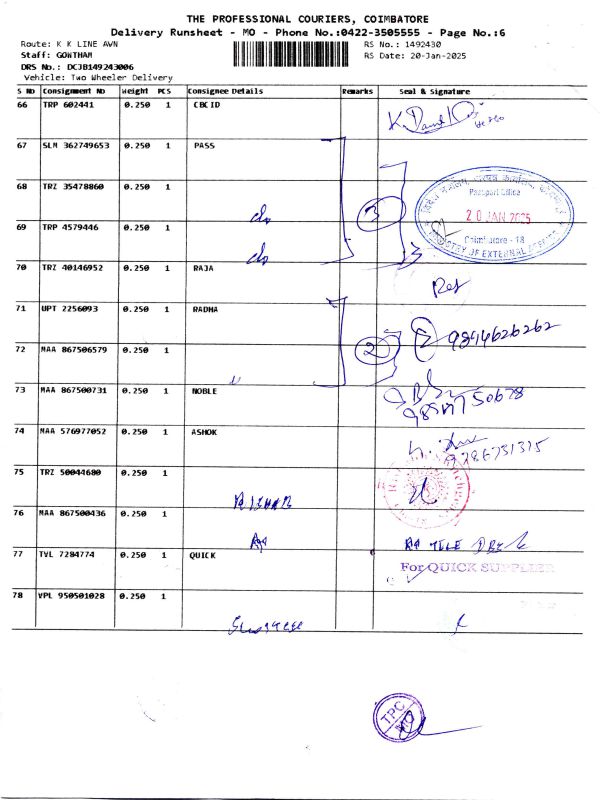 THE PROFESSIONAL COURIERS, COIMBATORE
Delivery Runsheet - MO - Phone No.:0422-3505555 - Page No.:6
Route: K K LINE AVN
RS No.: 1492430
Staff: GOWTHAM
RS Date: 20-Jan-2025
DRS No.: DCJB149243006
Vehicle: Two Wheeler Delivery
S No Consignment No Weight PCS Consignee Details Remarks Seal & Signature
66 TRP 602441 0.250 1 CBCID
67 SLM 362749653 0.250 1 PASS
68 TRZ 35478860 0.250 1
Passport Office
20 JAN 2025
Coimbatore - 18
MINISTRY OF EXTERNAL AFFAIRS
do
3
69 TRP 4579446 0.250 1
do
3
70 TRZ 40146952 0.250 1 RAJA
71 UPT 2256093 0.250 1 RADHA
2 2 9894626262
72 MAA 867506579 0.250 1
73 MAA 867500731 0.250 1 NOBLE
74 MAA 576977052 0.250 1 ASHOK
9786731315
75 TRZ 50044680 0.250 1
76 MAA 867500436 0.250 1
77 TVL 7284774 0.250 1 QUICK
For QUICK SUPPLIER
78 VPL 950501028 0.250 1
TPC
MO